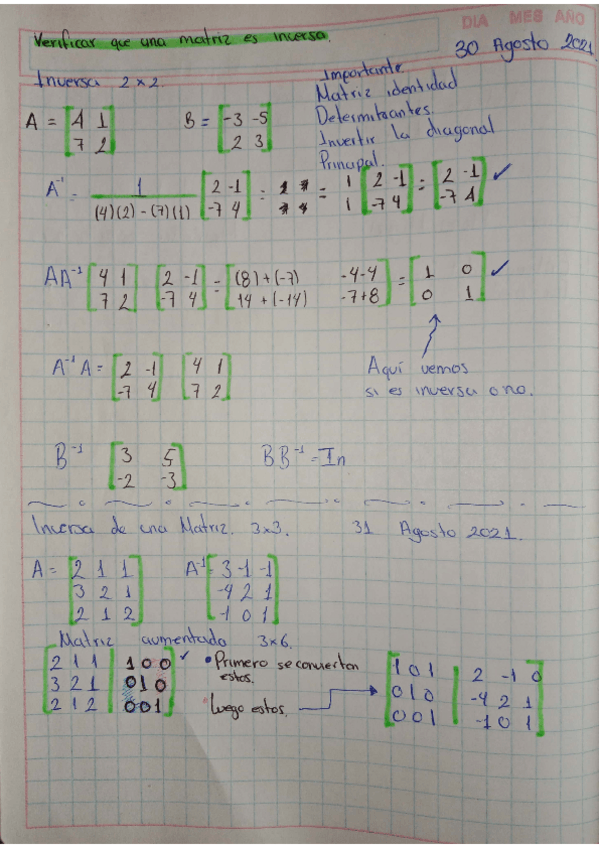 DIA MES AÑO
Verificar que una matriz es inversa.
30 Agosto 2021
Inversa 2x2.
Importante
Matriz identidad
Determinantes.
Invertir la diagonal
Principal.
A = [4 1
7 2]
B = [-3 -5
2 3]
A⁻¹ = 1 / (4)(2) - (7)(1) [2 -1
-7 4] = = 1/1 [2 -1
-7 4] = [2 -1
-7 4] ✓
AA⁻¹ [4 1
7 2] [2 -1
-7 4] = [(8)+(-7) -4-4
14+(-14) -7+8] = [1 0
0 1] ✓
A⁻¹A = [2 -1
-7 4] [4 1
7 2]
Aquí vemos
si es inversa o no.
B⁻¹ [3 5
-2 -3]
BB⁻¹ = In
Inversa de una Matriz. 3x3. 31 Agosto 2021.
A = [2 1 1
3 2 1
2 1 2]
A⁻¹ [3 -1 -1
-4 2 1
-1 0 1]
Matriz aumentado 3x6.
[2 1 1 | 1 0 0
3 2 1 | 0 1 0
2 1 2 | 0 0 1] ✓
• Primero se convierten
estos.
Luego estos.
[1 0 1 | 2 -1 0
0 1 0 | -4 2 1
0 0 1 | -1 0 1]